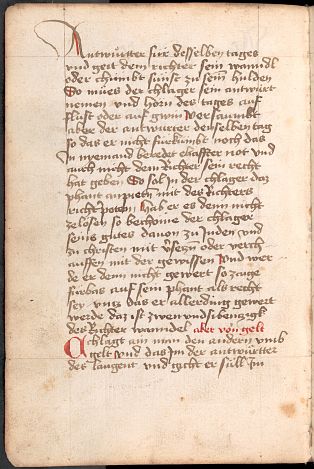 Antwurtter für desselben tages
vnd geit dem richter sein wanndl
oder chumbt sünst zu seinen hulden
So mües der chlager sein antwürt
nemen vnd horn des tages auf
flust oder auf gwin Versaumbt
aber der antwurter denselben tag
so das er nicht fürkumbt noch das
In nyemand beredet ehaffter not vnd
auch nicht dem Richter sein recht
hat geben So sol in der chlager daz
phant anpieten mit des Richters
poten Hab er es denn nicht
zelosen so bechome der chlager
seins gutes dauon zu Juden vnd
zu christen mit versetzn oder verch
auffen mit der gewissen Vnd wer
de er denn nicht gewert so
fürbas auf sein phant als recht
sey vntz das er allerding gewert
werde daz ist zwen vnd sibentzigk
des Richter wanndel aber von gelt
Chlagt ain man den andern vmb
gelt vnd das Im der antwürtter
des laugent vnd gicht er süll Im